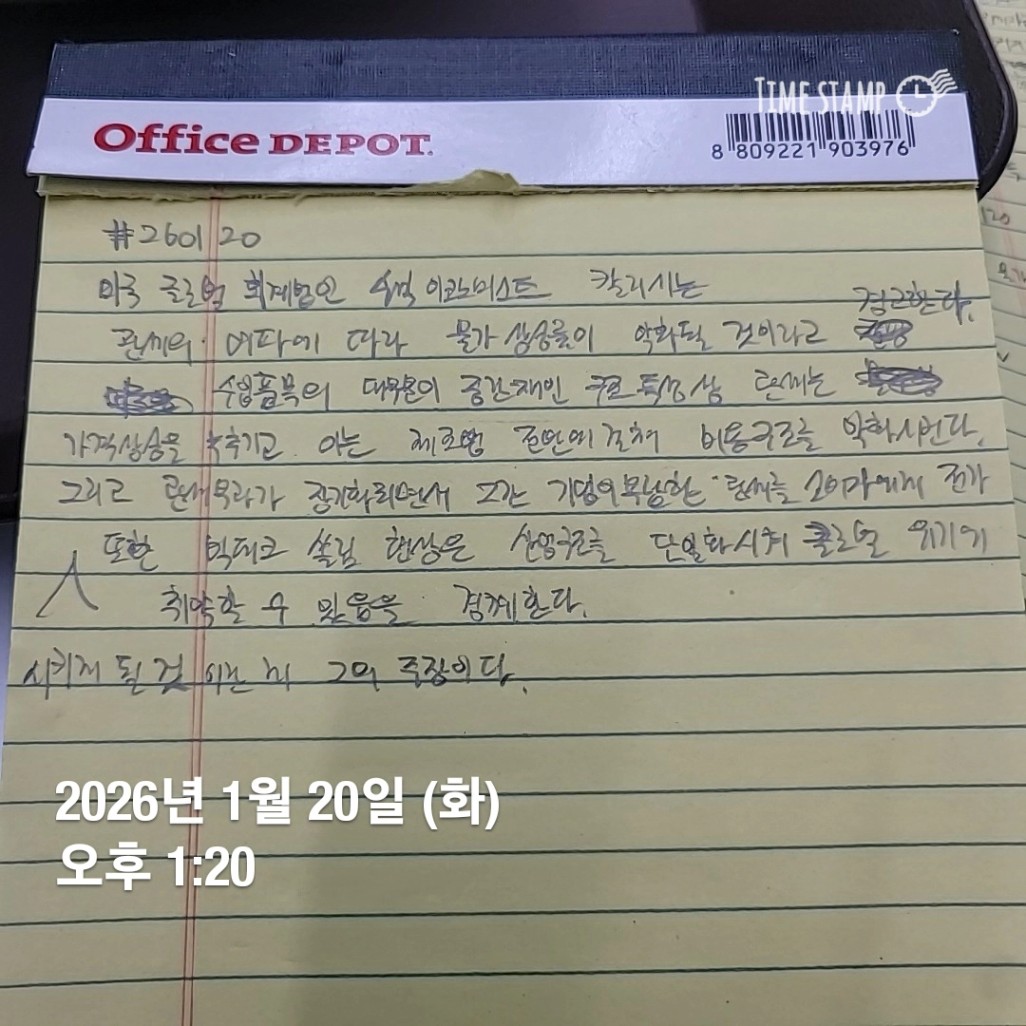 TIME STAMP
Office DEPOT.
8 809221 903976
#260120
미국 글로벌 회계법인 수석 이코노미스트 칼리시는
관세의 여파에 따라 물가 상승률이 악화될 것이라고 경고한다.
수입품목의 대부분이 중간재인 구조 특성상 관세는
가격상승을 부추기고 이는 제조업 전반에 걸쳐 비용구조를 악화시킨다.
그리고 관세부과가 장기화되면서 그간 기업이 부담한 관세를 소비자에게 전가
또한 빅테크 쏠림 현상은 산업구조를 단일화시켜 글로벌 위기에
취약할 수 있음을 경계한다.
시키게 될 것 이란 게 그의 주장이다.
2026년 1월 20일 (화)
오후 1:20